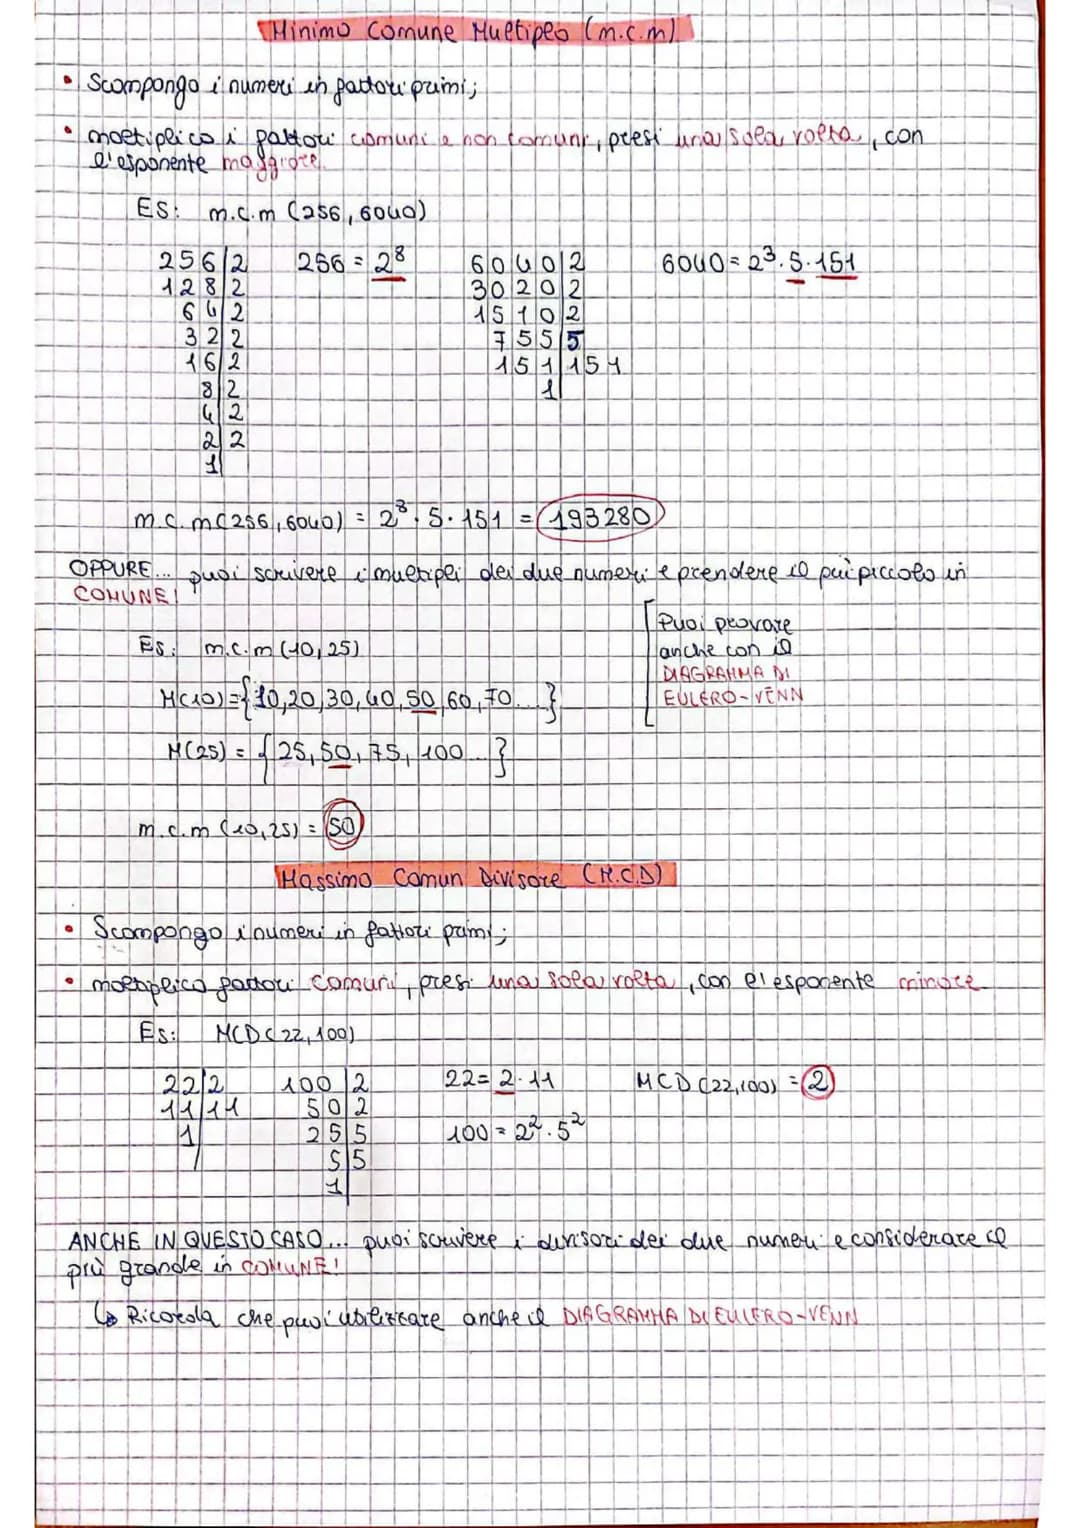 Minimo Comune Multiplo (m.c.m)
• Scompongo i numeri in fattori primi;
• moltiplico i fattori comuni e non comuni, presi una sola volta, con
l'esponente maggiore.
ES: m.c.m (256, 6040)
256|2 256 = 2⁸ 6040|2 6040 = 2³·5·151
128|2 3020|2
64|2 1510|2
32|2 755|5
16|2 151|151
8|2 1|
4|2
2|2
1|
m.c.m(256, 6040) = 2⁸·5·151 = 193280
OPPURE... puoi scrivere i multipli dei due numeri e prendere il più piccolo in
COMUNE!
Es: m.c.m (10,25)
Puoi provare
anche con il
DIAGRAMMA DI
EULERO-VENN
M(10)={10,20,30,40,50,60,70...}
M(25) = {25,50,75,100...}
m.c.m (10,25) = 50
Massimo Comun Divisore (M.C.D)
• Scompongo i numeri in fattori primi;
• moltiplico fattori comuni, presi una sola volta, con l'esponente minore
Es: MCD(22,100)
22|2 100|2 22 = 2·11 MCD (22,100) = 2
11|11 50|2
1| 25|5 100 = 2²·5²
5|5
1|
ANCHE IN QUESTO CASO... puoi scrivere i divisori dei due numeri e considerare il
più grande in COMUNE!
↳ Ricorda che puoi utilizzare anche il DIAGRAMMA DI EULERO-VENN